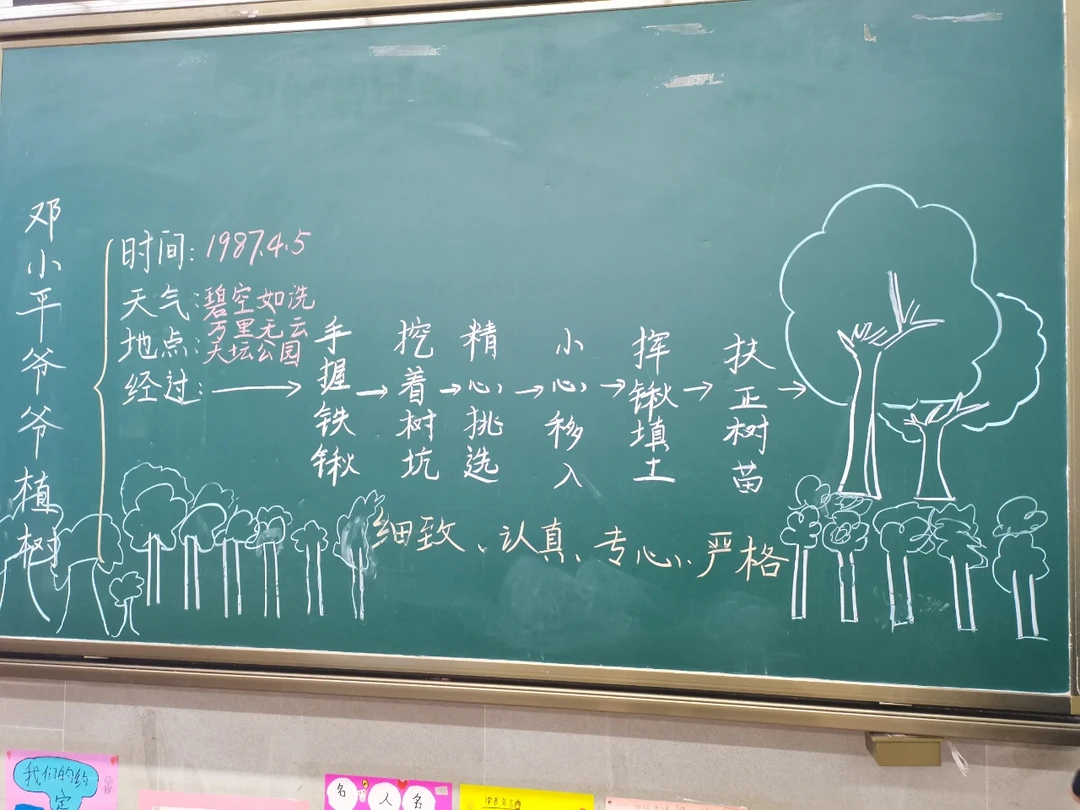 邓小平爷爷植树
时间:1987.4.5
天气:碧空如洗
万里无云
地点:天坛公园
经过:
手握铁锹
挖着树坑
精心挑选
小心移入
挥锹填土
扶正树苗
细致、认真、专心、严格
我们的约定
名人名